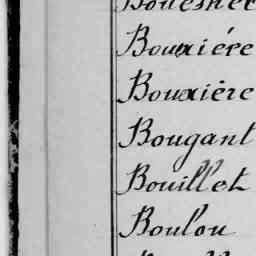 Bouexière
Bouxière
Bougant
Bouillet
Boulou